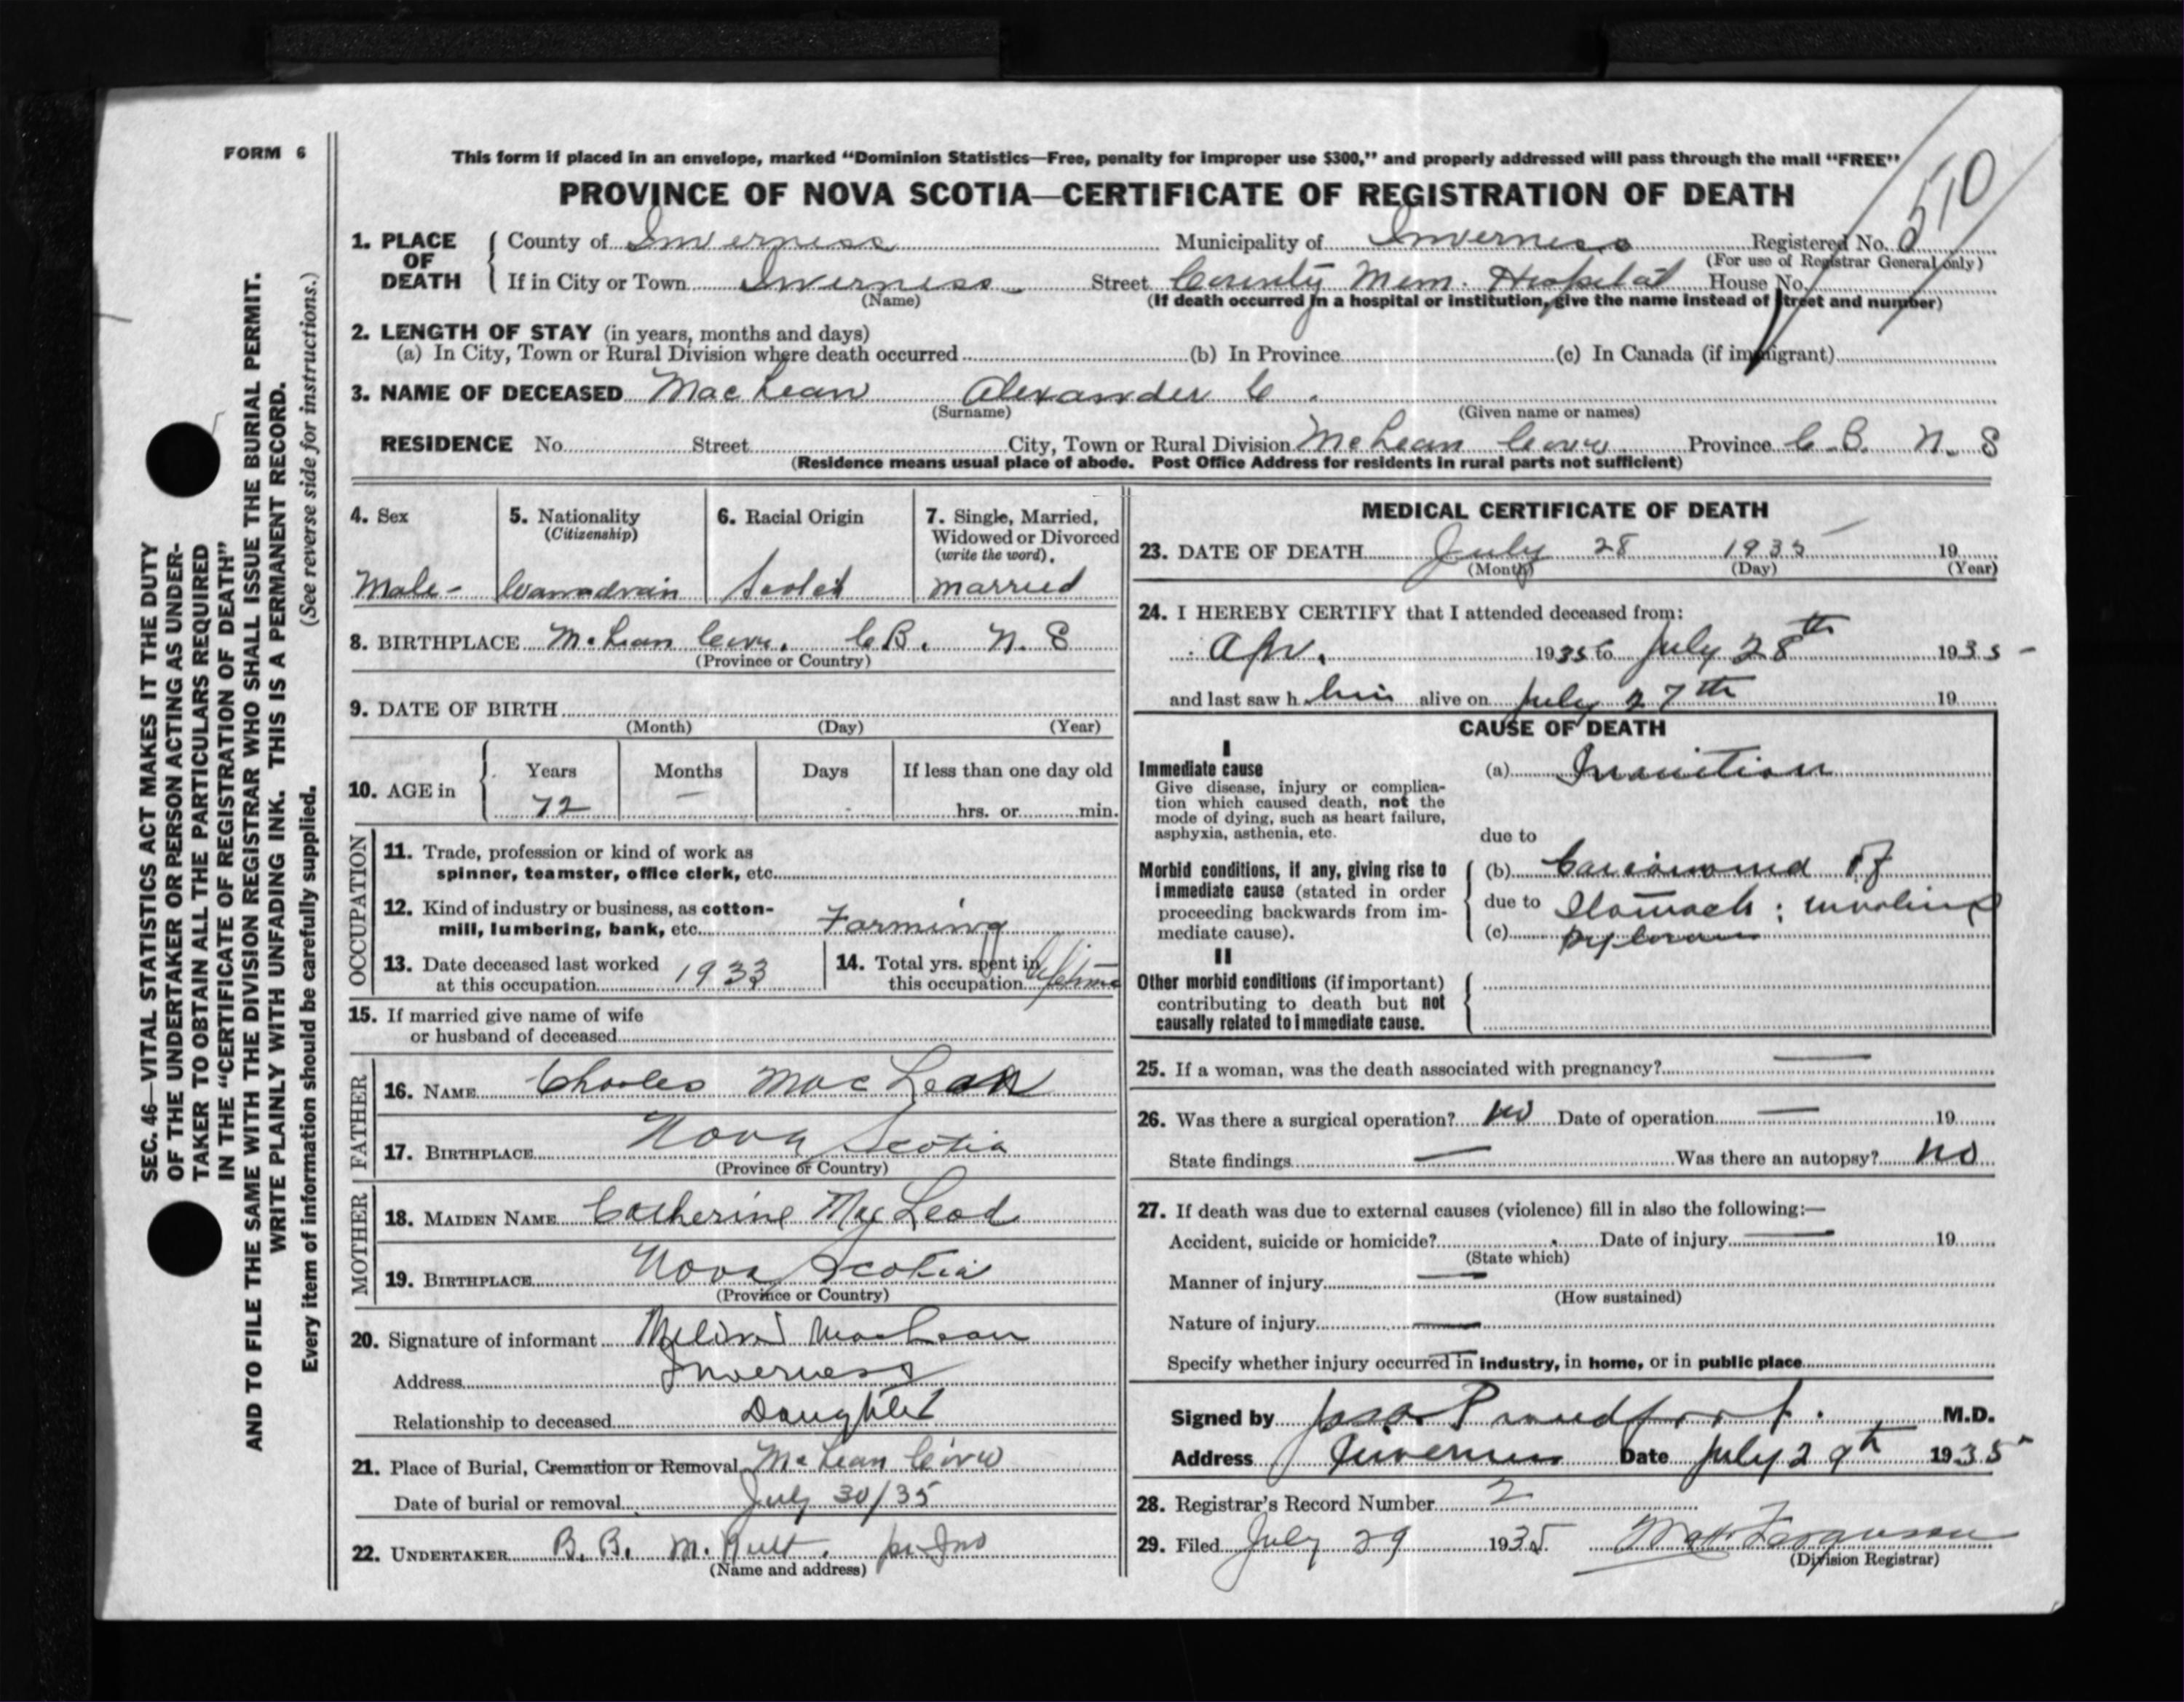 FORM 6
This form if placed in an envelope, marked “Dominion Statistics—Free, penalty for improper use $300,” and properly addressed will pass through the mail “FREE”
PROVINCE OF NOVA SCOTIA—CERTIFICATE OF REGISTRATION OF DEATH
510
1. PLACE OF DEATH
County of Inverness Municipality of Inverness Registered No.
(For use of Registrar General only)
If in City or Town Inverness Street County Mem. Hospital House No.
(Name) (If death occurred in a hospital or institution, give the name instead of street and number)
2. LENGTH OF STAY (in years, months and days)
(a) In City, Town or Rural Division where death occurred (b) In Province (c) In Canada (if immigrant)
3. NAME OF DECEASED MacLean Alexander C.
(Surname) (Given name or names)
RESIDENCE No. Street City, Town or Rural Division McLean Cove Province C.B. N.S
(Residence means usual place of abode. Post Office Address for residents in rural parts not sufficient)
4. Sex
Male -
5. Nationality
(Citizenship)
Canadian
6. Racial Origin
Scotch
7. Single, Married,
Widowed or Divorced
(write the word).
married
8. BIRTHPLACE McLean Cove, C.B. N.S
(Province or Country)
9. DATE OF BIRTH
(Month) (Day) (Year)
10. AGE in Years Months Days If less than one day old
72 — hrs. or min.
OCCUPATION
11. Trade, profession or kind of work as
spinner, teamster, office clerk, etc.
12. Kind of industry or business, as cotton-
mill, lumbering, bank, etc. Farming
13. Date deceased last worked
at this occupation 1933
14. Total yrs. spent in
this occupation Lifetime
15. If married give name of wife
or husband of deceased
FATHER
16. NAME Charles MacLean
17. BIRTHPLACE Nova Scotia
(Province or Country)
MOTHER
18. MAIDEN NAME Catherine MacLeod
19. BIRTHPLACE Nova Scotia
(Province or Country)
20. Signature of informant MacLean
Address Inverness
Relationship to deceased Daughter
21. Place of Burial, Cremation or Removal McLean Cove
Date of burial or removal July 30/35
22. UNDERTAKER B. B.
(Name and address)
MEDICAL CERTIFICATE OF DEATH
23. DATE OF DEATH July 28 1935 19
(Month) (Day) (Year)
24. I HEREBY CERTIFY that I attended deceased from:
Apr. 1935 to July 28th 1935 -
and last saw h him alive on July 27th 19
CAUSE OF DEATH
I
Immediate cause
Give disease, injury or complica-
tion which caused death, not the
mode of dying, such as heart failure,
asphyxia, asthenia, etc.
(a) Inanition
due to
Morbid conditions, if any, giving rise to
immediate cause (stated in order
proceeding backwards from im-
mediate cause).
(b) Carcinoma of
due to Stomach; involving
(c) pylorus
II
Other morbid conditions (if important)
contributing to death but not
causally related to immediate cause.
25. If a woman, was the death associated with pregnancy? —
26. Was there a surgical operation? No Date of operation — 19
State findings — Was there an autopsy? No
27. If death was due to external causes (violence) fill in also the following:—
Accident, suicide or homicide? Date of injury — 19
(State which)
Manner of injury —
(How sustained)
Nature of injury —
Specify whether injury occurred in industry, in home, or in public place
Signed by Proudfoot. M.D.
Address Inverness Date July 29th 1935
28. Registrar's Record Number 2
29. Filed July 29 1935 Ferguson
(Division Registrar)
SEC. 46—VITAL STATISTICS ACT MAKES IT THE DUTY
OF THE UNDERTAKER OR PERSON ACTING AS UNDER-
TAKER TO OBTAIN ALL THE PARTICULARS REQUIRED
IN THE “CERTIFICATE OF REGISTRATION OF DEATH”
AND TO FILE THE SAME WITH THE DIVISION REGISTRAR WHO SHALL ISSUE THE BURIAL PERMIT.
WRITE PLAINLY WITH UNFADING INK. THIS IS A PERMANENT RECORD.
Every item of information should be carefully supplied. (See reverse side for instructions.)